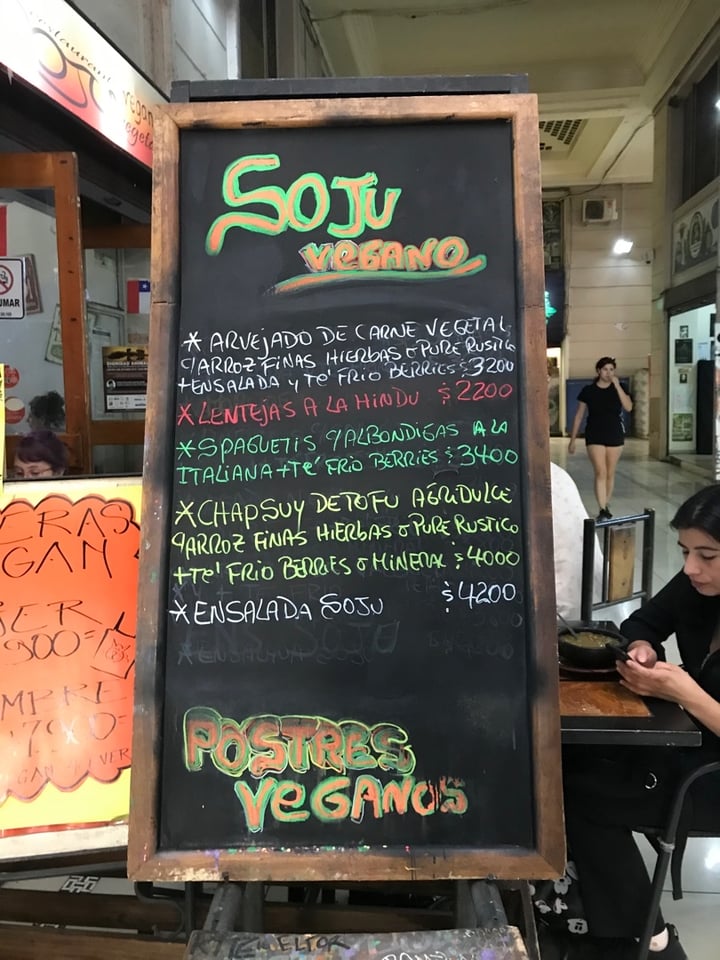 Restaurant
SOJU
VEGANO
* ARVEJADO DE CARNE VEGETAL
C/ARROZ FINAS HIERBAS O PURE RUSTICO
+ENSALADA Y Té FRIO BERRIES $3200
* LENTEJAS A LA HINDU $2200
* SPAGUETIS C/ALBONDIGAS A LA
ITALIANA + Té FRIO BERRIES $3400
* CHAPSUY DE TOFU AGRIDULCE
C/ARROZ FINAS HIERBAS O PURE RUSTICO
+Té FRIO BERRIES O MINERAL $4000
* ENSALADA SOJU $4200
POSTRES
VEGANOS